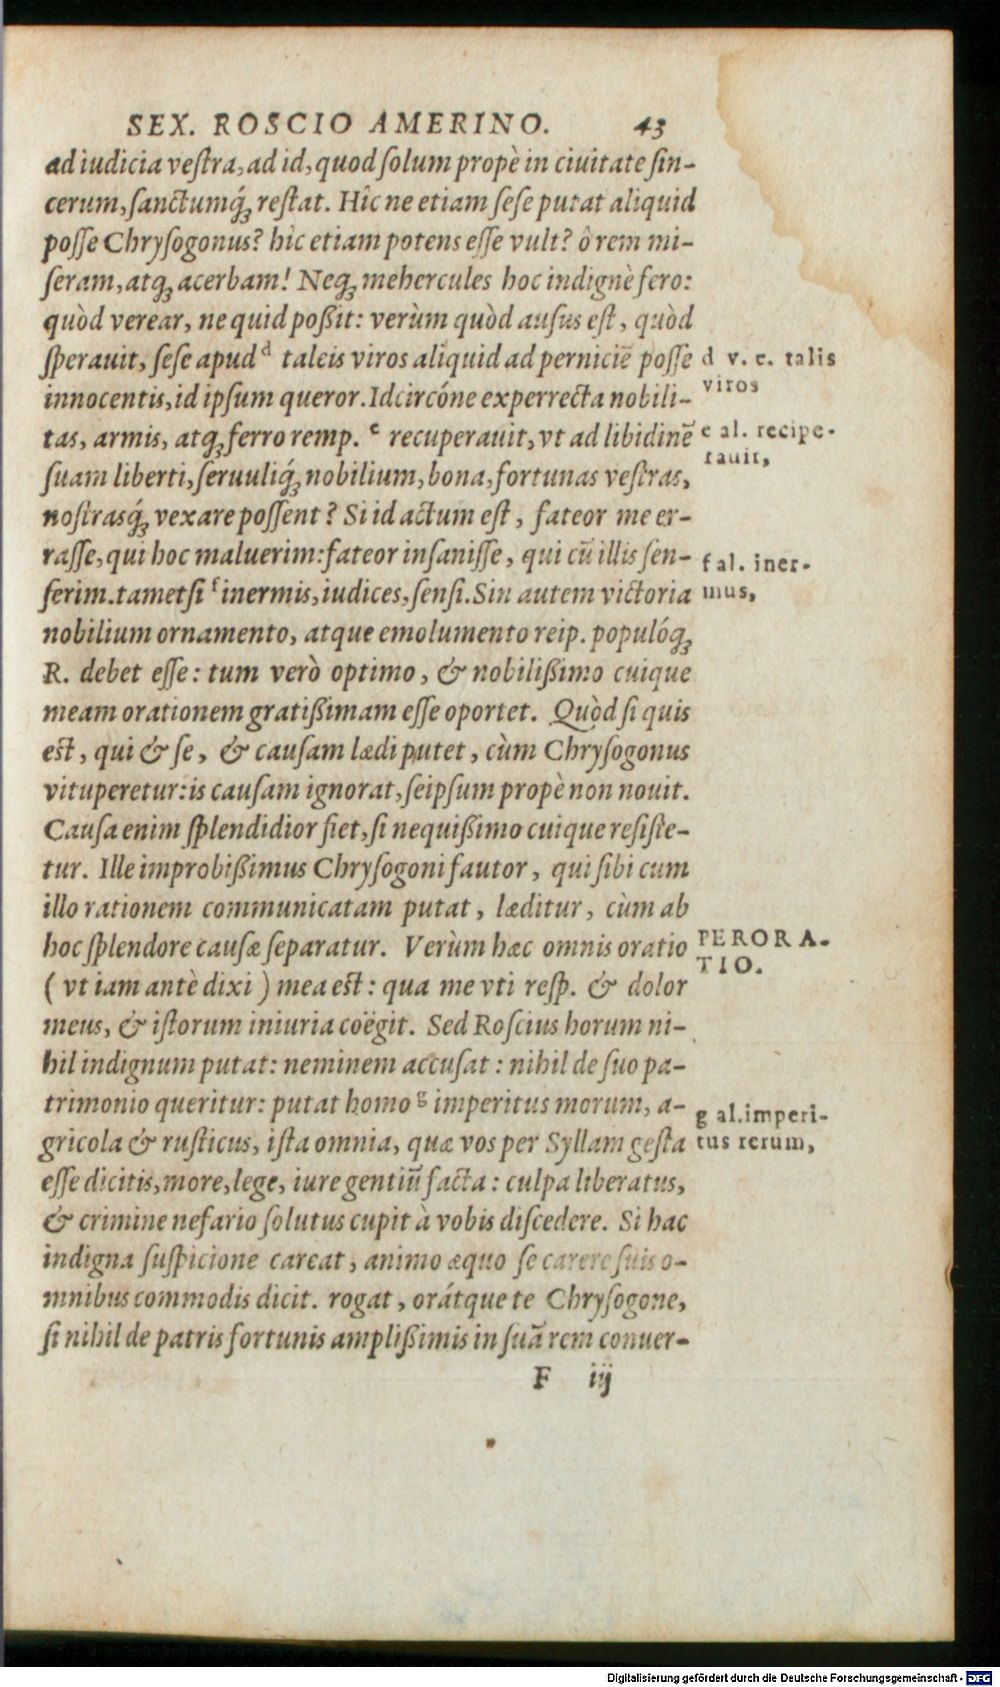 SEX. ROSCIO AMERINO. 43
ad iudicia vestra, ad id, quod solum propè in ciuitate sin-
cerum, sanctumq́ꝫ restat. Hîc ne etiam sese putat aliquid
posse Chrysogonus? hîc etiam potens esse vult? ô rem mi-
seram, atqꝫ acerbam! Neqꝫ mehercules hoc indignè fero:
quòd verear, ne quid poßit: verùm quòd ausus est, quòd
sperauit, sese apud d taleis viros aliquid ad perniciē posse
d v. c. talis
viros
innocentis, id ipsum queror. Idcircóne experrecta nobili-
tas, armis, atqꝫ ferro remp. e recuperauit, vt ad libidinē
e al. recipe-
rauit,
suam liberti, seruuliq́ꝫ nobilium, bona, fortunas vestras,
nostrasq́ꝫ vexare possent? Si id actum est, fateor me er-
rasse, qui hoc maluerim: fateor insanisse, qui cū illis sen-
ferim. tametsi f inermis, iudices, sensi. Sin autem victoria
f al. iner-
mus,
nobilium ornamento, atque emolumento reip. populóqꝫ
R. debet esse: tum verò optimo, & nobilißimo cuique
meam orationem gratißimam esse oportet. Quòd si quis
est, qui & se, & causam lædi putet, cùm Chrysogonus
vituperetur: is causam ignorat, seipsum propè non nouit.
Causa enim splendidior fiet, si nequißimo cuique resiste-
tur. Ille improbißimus Chrysogoni fautor, qui sibi cum
illo rationem communicatam putat, læditur, cùm ab
hoc splendore causæ separatur. Verùm hæc omnis oratio
PERORA-
TIO.
(vt iam antè dixi) mea est: qua me vti resp. & dolor
meus, & istorum iniuria coëgit. Sed Roscius horum ni-
hil indignum putat: neminem accusat: nihil de suo pa-
trimonio queritur: putat homo g imperitus morum, a-
g al. imperi-
tus rerum,
gricola & rusticus, ista omnia, quæ vos per Syllam gesta
esse dicitis, more, lege, iure gentiū facta: culpa liberatus,
& crimine nefario solutus cupit à vobis discedere. Si hac
indigna suspicione careat, animo æquo se carere suis o-
mnibus commodis dicit. rogat, orátque te Chrysogone,
si nihil de patris fortunis amplißimis in suā rem conuer-
F iij
Digitalisierung gefördert durch die Deutsche Forschungsgemeinschaft - DFG